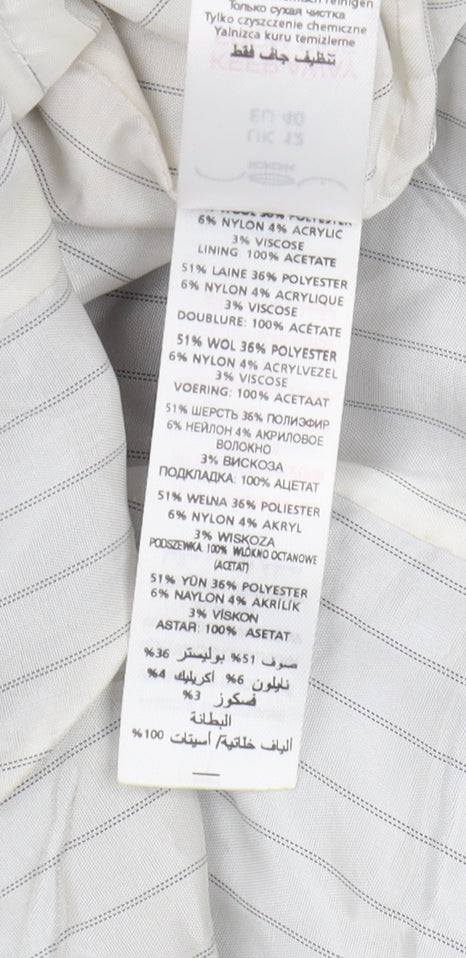 reinigen
Только сухая чистка
Tylko czyszczenie chemiczne
Yalnizca kuru temizleme
تنظيف جاف فقط
KEEP AWAY
EU 40
UK 12
36% POLYESTER
6% NYLON 4% ACRYLIC
3% VISCOSE
LINING: 100% ACETATE
51% LAINE 36% POLYESTER
6% NYLON 4% ACRYLIQUE
3% VISCOSE
DOUBLURE: 100% ACÉTATE
51% WOL 36% POLYESTER
6% NYLON 4% ACRYLVEZEL
3% VISCOSE
VOERING: 100% ACETAAT
51% ШЕРСТЬ 36% ПОЛИЭФИР
6% НЕЙЛОН 4% АКРИЛОВОЕ
ВОЛОКНО
3% ВИСКОЗА
ПОДКЛАДКА: 100% АЦЕТАТ
51% WEŁNA 36% POLIESTER
6% NYLON 4% AKRYL
3% WISKOZA
PODSZEWKA: 100% WŁÓKNO OCTANOWE
(ACETAT)
51% YÜN 36% POLYESTER
6% NAYLON 4% AKRİLİK
3% VİSKON
ASTAR: 100% ASETAT
صوف 51% بوليستر 36%
نايلون 6% اكريليك 4%
فسكوز 3%
البطانة
ألياف خلاتية/ أسيتات 100%